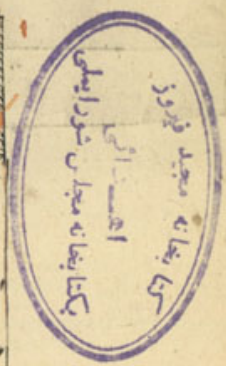 کتابخانه مجید فیروز
اهدائی
بکتابخانه مجلس شورایملی